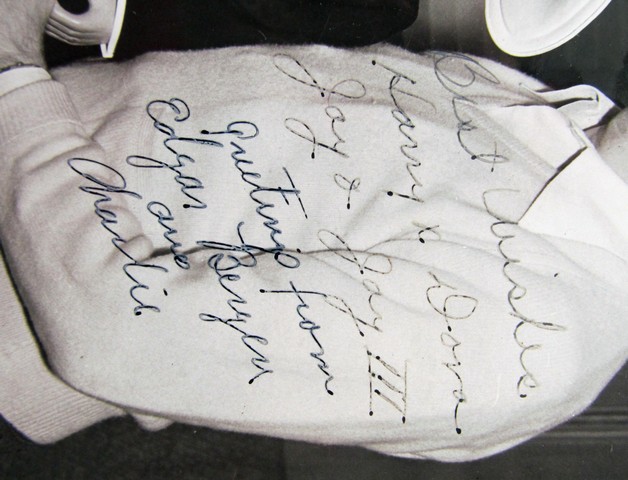 Best Wishes
Harry & Dora
Joy & Jay III
Greetings from
Edgar Bergen
and
Charlie